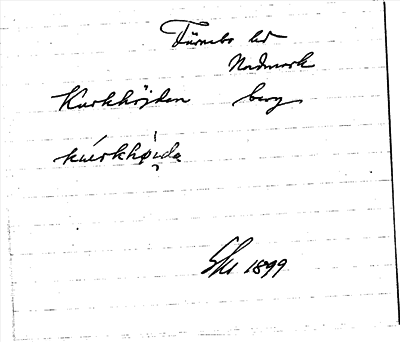 Färnebo hd
Nedmark
Kurkhöjden berg
kúrkhø̀ıdα
Sku 1899